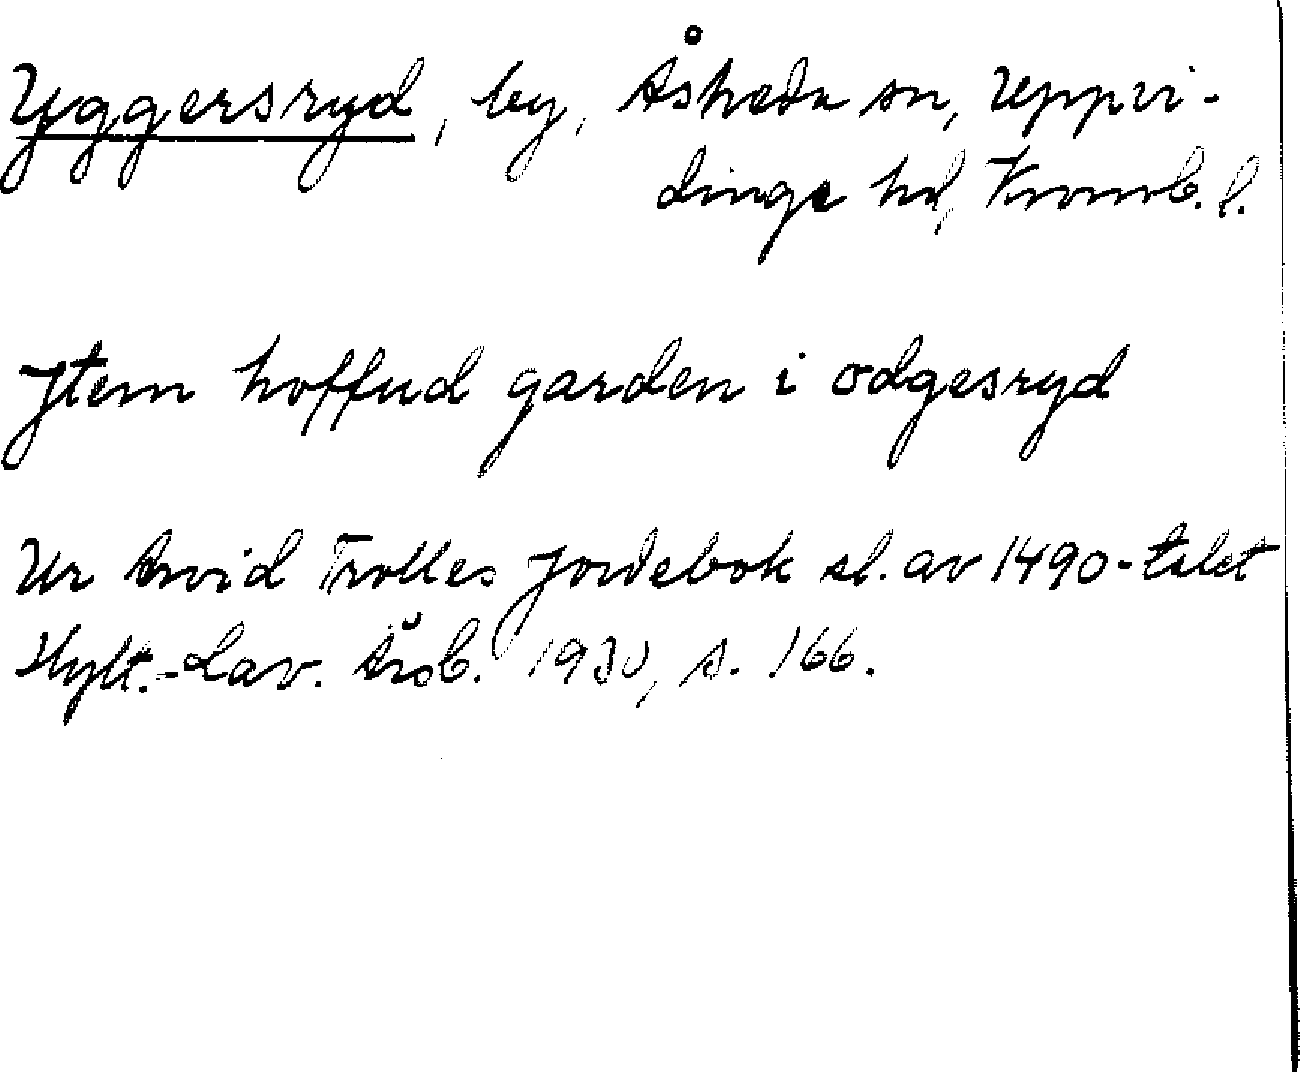 Yggersryd, by, Åsheda sn, Uppvi-
dinge hd, Kronob. l.
Jtem hoffud garden i odgesryd
Ur Arvid Trolles Jordebok sl. av 1490-talet
Hylt.-Cav. Årsb. 1930, s. 166.